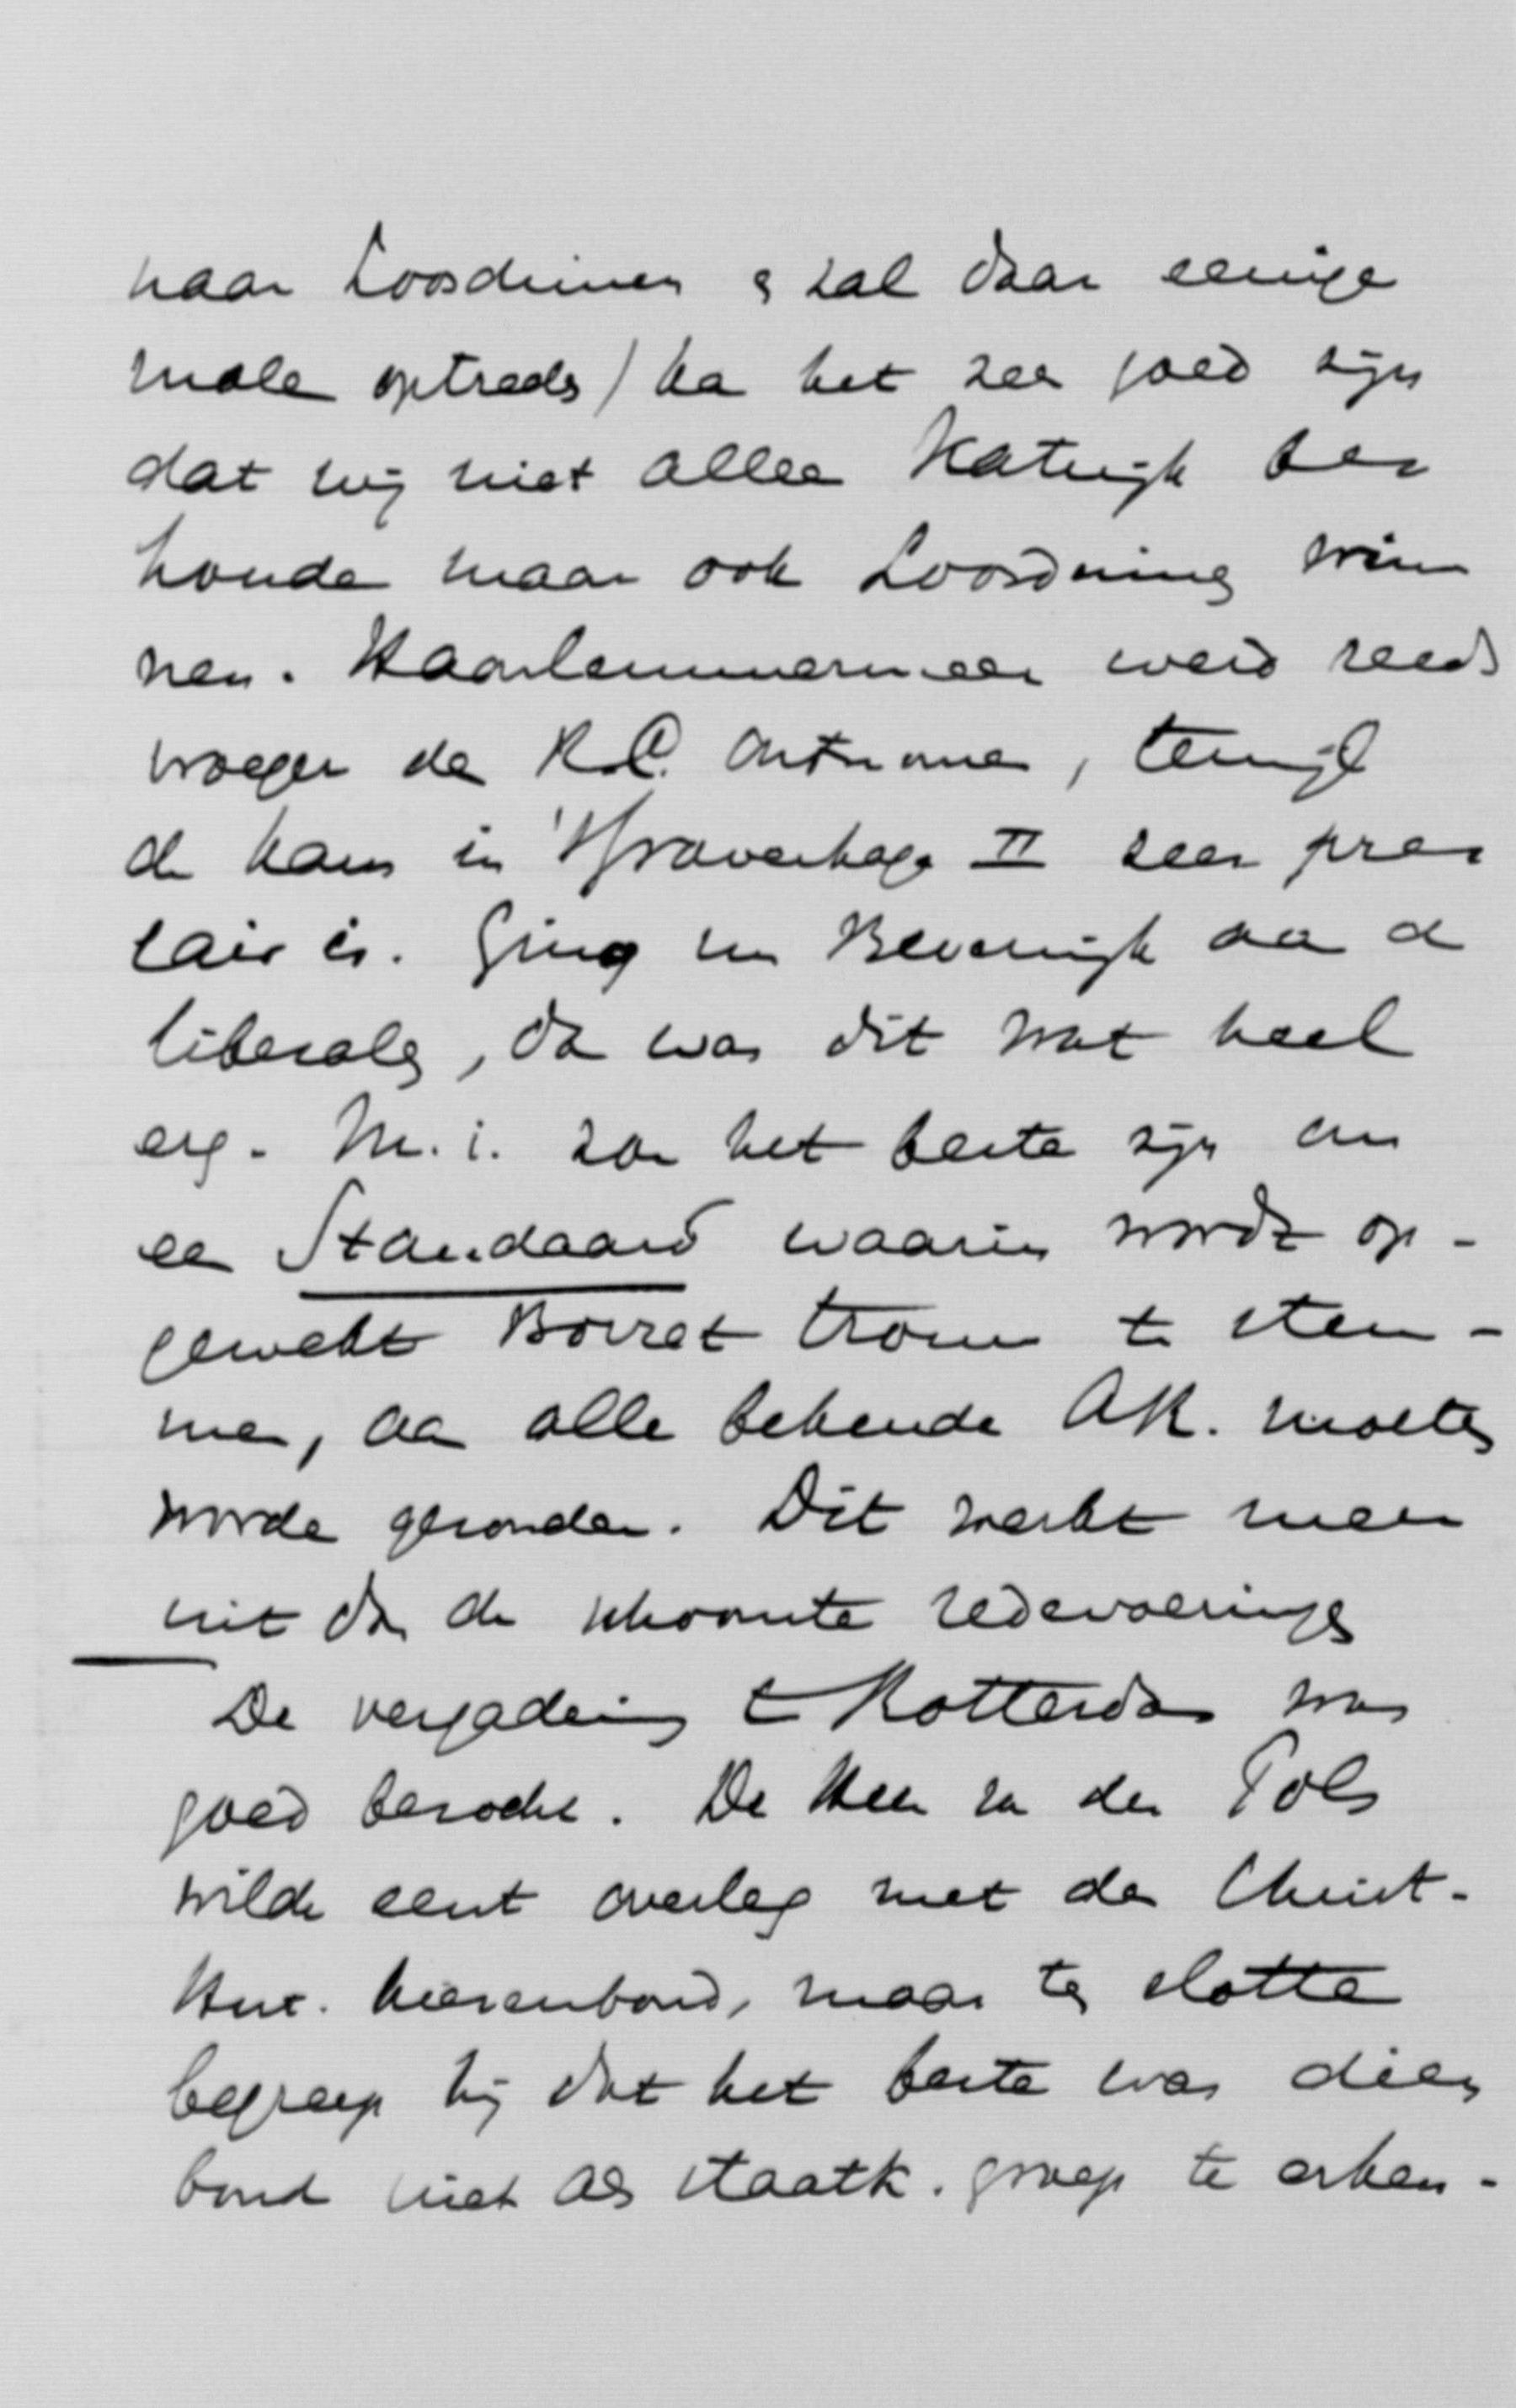 naar Loosduinen & zal daar eenige
male optreden) ka het zeer goed zijn
dat wij niet alleen Katwijk be-
houde maar ook Loosduinen win
nen. Haarlemmermeer werd reeds
vroeger de R.C. ontnomen, terwijl
de kans in 's Gravenhage II zeer pre-
cair is. Ging nu Beverwijk aan de
liberalen, da was dit wat heel
erg. M.i. zou het beste zijn om
een Standaard waarin wordt op-
gewekt Borret trouw te stem-
men, aan alle bekende AR. moeten
worde gezonden. Dit werkt meer
uit dan de schoonste redevoeringen
De vergadering te Rotterdam was
goed bezocht. De Heer van der Pols
wilde eerst overleg met den Christ-
Hist. kiezersbond, maar ten slotte
begreep hij dat het beste was dien
bond niet als staatk. groep te erken-